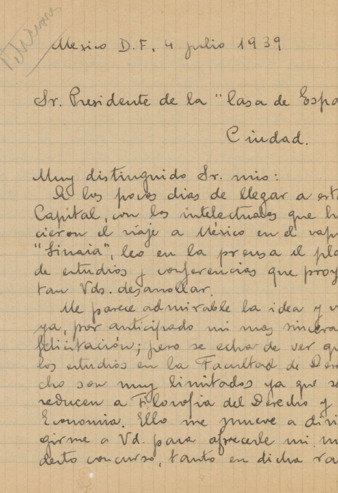 Mexico D.F, 4 julio 1939
Sr. Presidente de la "Casa de Espa
Ciudad.
Muy distinguido Sr. mio:
A los pocos dias de llegar a est
Capital, con los intelectuales que hi
cieron el viaje a México en el vap
"Sinaia", leo en la prensa el pla
de estudios y conferencias que proy
tan Vds. desarollar.
Me parece admirable la idea y v
ya, por anticipado mi mas sincera
felicitación; pero se echa de ver qu
los estudios en la Facultad de Dere
cho son muy limitados ya que se
reducen a Filosofia del Derecho y
Economia. Ello me mueve a diri
girme a Vd. para ofrecerle mi mo
desto concurso, tanto en dicha ra